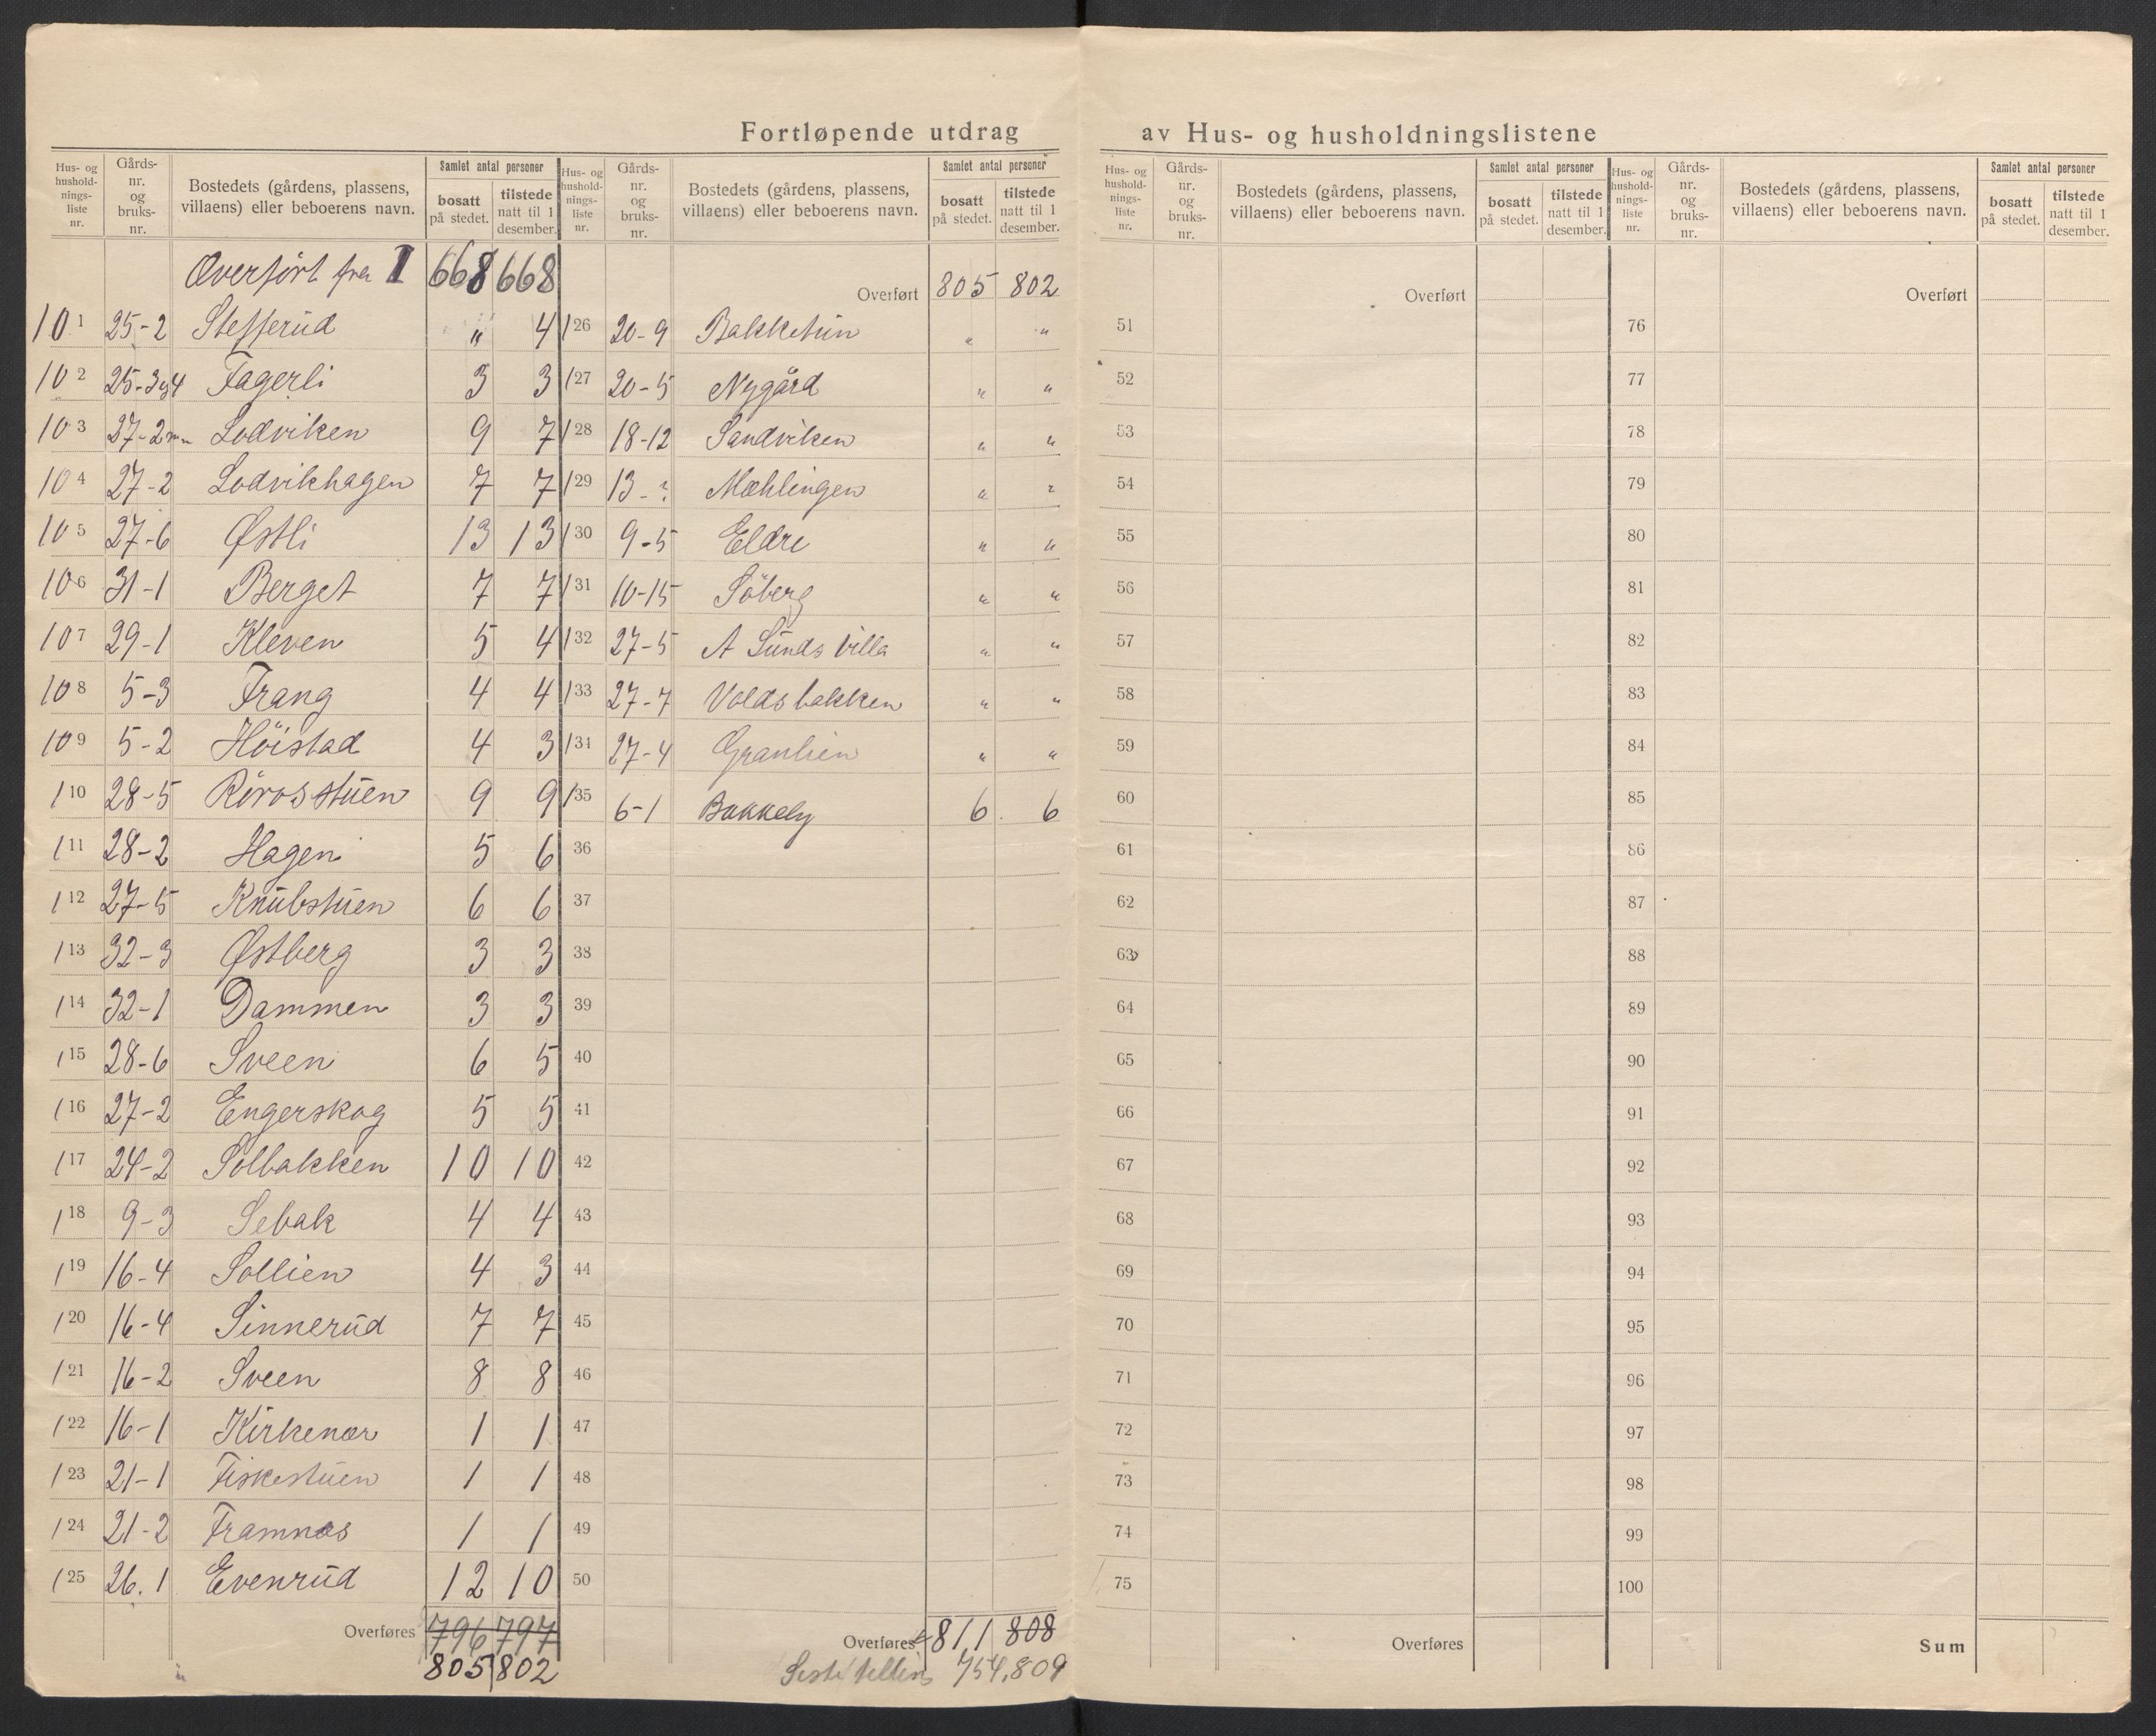 Fortløpende utdrag av Hus- og husholdningslistene
Hus- og husholdningsliste nr. | Gårds-nr. og bruks-nr. | Bostedets (gårdens, plassens, villaens) eller beboerens navn. | Samlet antal personer | bosatt på stedet. | tilstede natt til 1 desember.
Overført fra 1 668 668
101 25-2 Stefferud " 4
102 25-3og4 Fagerli 3 3
103 27-2 Lodviken 9 7
104 27-2 Lodvikhagen 7 7
105 27-6 Østli 13 13
106 31-1 Berget 7 7
107 29-1 Kleven 5 4
108 5-3 Frang 4 4
109 5-2 Höistad 4 3
110 28-5 Rörosstuen 9 9
111 28-2 Hagen 5 6
112 27-5 Knubstuen 6 6
113 32-3 Østberg 3 3
114 32-1 Dammen 3 3
115 28-6 Sveen 6 5
116 27-2 Engerskog 5 5
117 24-2 Solbakken 10 10
118 9-3 Sebak 4 4
119 16-4 Sollien 4 3
120 16-4 Sinnerud 7 7
121 16-2 Sveen 8 8
122 16-1 Kirkenær 1 1
123 21-1 Fiskestuen 1 1
124 21-2 Framnæs 1 1
125 26.1 Evenrud 12 10
Overføres 796 797
805 802
Hus- og husholdningsliste nr. | Gårds-nr. og bruks-nr. | Bostedets (gårdens, plassens, villaens) eller beboerens navn. | Samlet antal personer | bosatt på stedet. | tilstede natt til 1 desember.
Overført 805 802
126 20-9 Bakketun " "
127 20-5 Nygård " "
128 18-12 Sandviken " "
129 13-? Mæhlingen " "
130 9-5 Eldre " "
131 10-15 Söberg " "
132 27-5 A Lunds Villa " "
133 27-7 Voldsbakken " "
134 27-4 Granlien " "
135 6-1 Bakkely 6 6
36
37
38
39
40
41
42
43
44
45
46
47
48
49
50
Overføres 811 808
Siste telling 754.809
Hus- og husholdningsliste nr. | Gårds-nr. og bruks-nr. | Bostedets (gårdens, plassens, villaens) eller beboerens navn. | Samlet antal personer | bosatt på stedet. | tilstede natt til 1 desember.
Overført
51
52
53
54
55
56
57
58
59
60
61
62
63
64
65
66
67
68
69
70
71
72
73
74
75
Overføres
Hus- og husholdningsliste nr. | Gårds-nr. og bruks-nr. | Bostedets (gårdens, plassens, villaens) eller beboerens navn. | Samlet antal personer | bosatt på stedet. | tilstede natt til 1 desember.
Overført
76
77
78
79
80
81
82
83
84
85
86
87
88
89
90
91
92
93
94
95
96
97
98
99
100
Sum